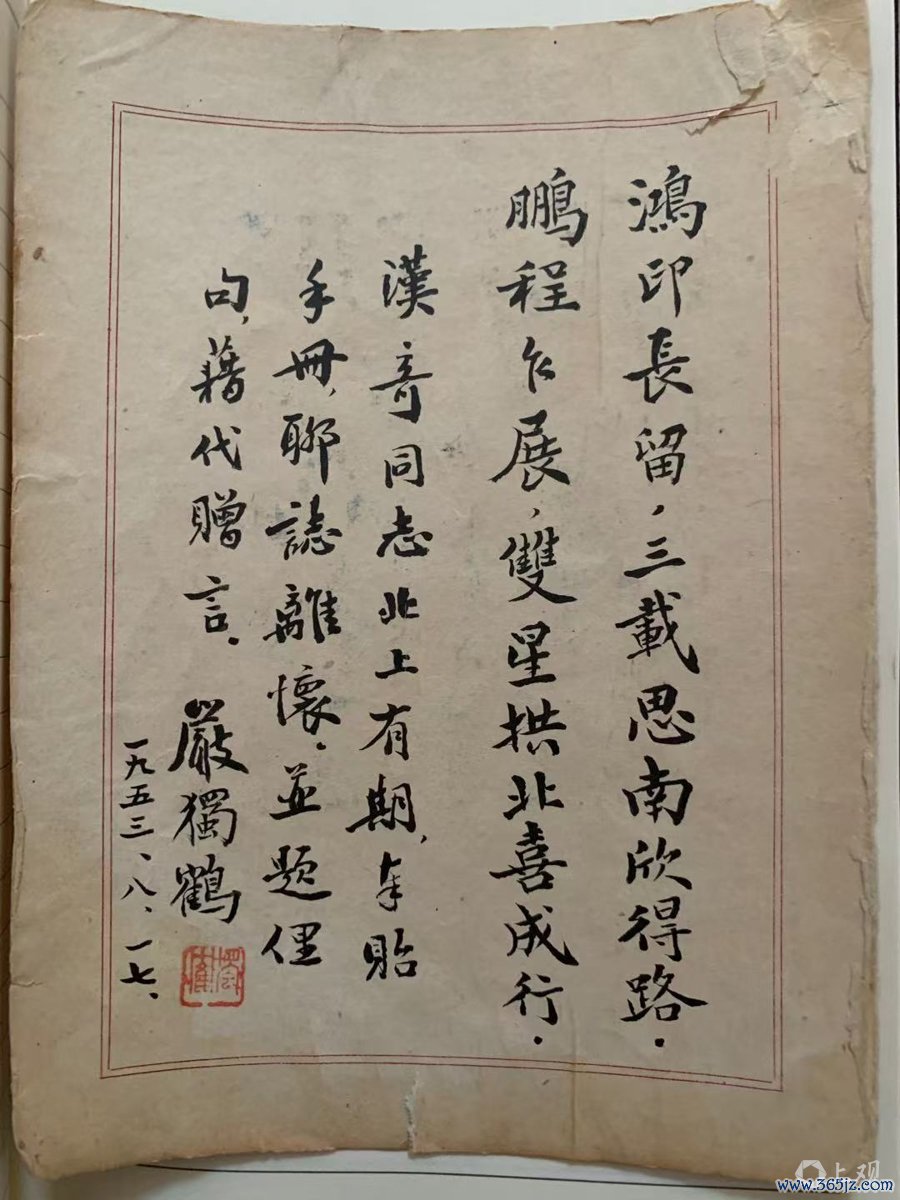 鴻印長留，三載思南欣得路．
鵬程乍展，雙星拱北喜成行．
漢奇同志北上有期，奉貽
手冊，聊誌離懷．並題俚
句，藉代贈言．
嚴獨鶴
一九五三、八、一七、
上观
www.365jz.com